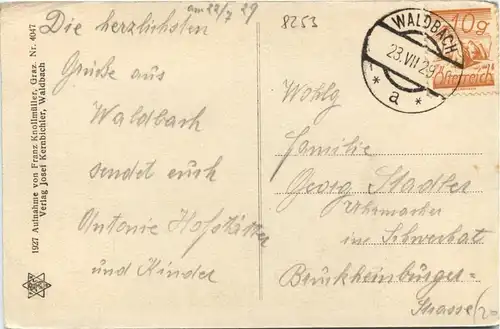 am 22/7 29
Die herzlichsten
Grüße aus
Waldbach
sendet euch
Antonie Hofstätter
und Kinder
1927 Aufnahme von Franz Knollmüller, Graz. Nr. 4047
Verlag Josef Kernbichler, Waldbach
8253
WALDBACH
23.VII.29
* a *
10g
Österreich
Wohlg
Familie
Georg Stadler
Uhrmacher
in Schwechat
Bruckheinburger-
Strasse